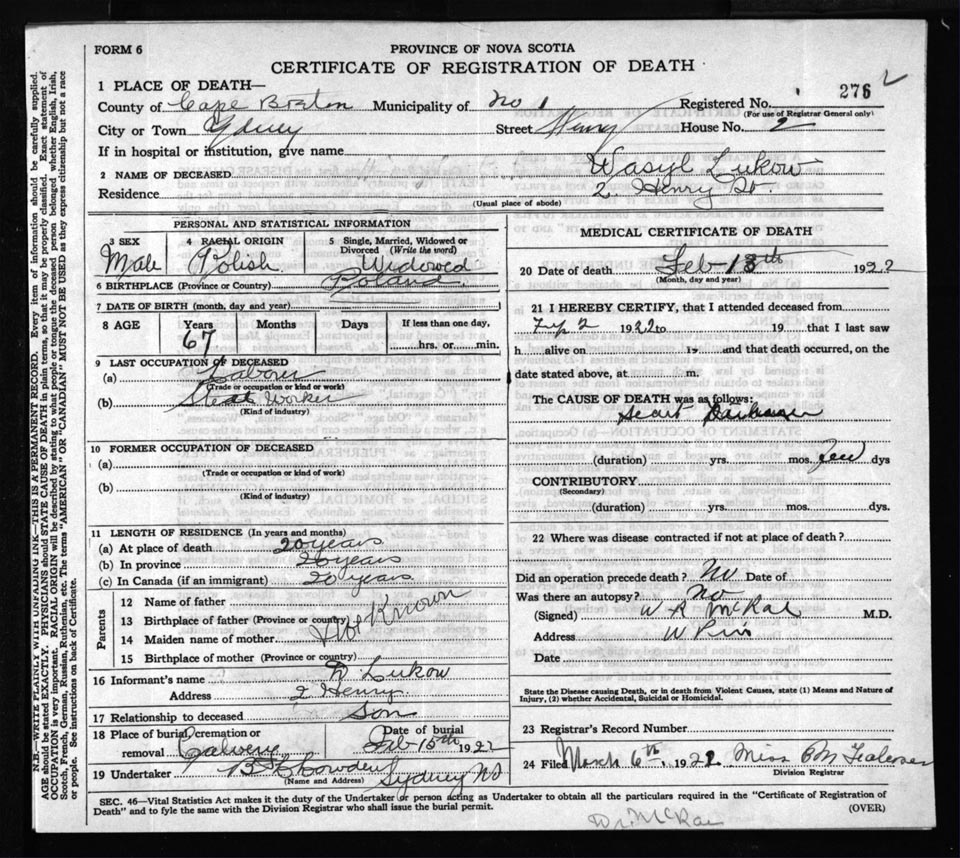 FORM 6
PROVINCE OF NOVA SCOTIA
CERTIFICATE OF REGISTRATION OF DEATH
276
1 PLACE OF DEATH—
County of Cape Breton Municipality of No 1 Registered No.
(For use of Registrar General only)
City or Town Sydney Street Henry House No. 2
If in hospital or institution, give name
2 NAME OF DECEASED Wasyl Lukow
Residence 2 Henry St.
(Usual place of abode)
PERSONAL AND STATISTICAL INFORMATION
3 SEX 4 RACIAL ORIGIN 5 Single, Married, Widowed or Divorced (Write the word)
Male Polish Widowed
6 BIRTHPLACE (Province or Country) Poland
7 DATE OF BIRTH (month, day and year)
8 AGE Years Months Days If less than one day,
67 hrs. or min.
9 LAST OCCUPATION OF DECEASED
(a) Labourer
(Trade or occupation or kind or work)
(b) Steel Worker
(Kind of industry)
10 FORMER OCCUPATION OF DECEASED
(a)
(Trade or occupation or kind of work)
(b)
(Kind of industry)
11 LENGTH OF RESIDENCE (In years and months)
(a) At place of death 20 years
(b) In province 20 years
(c) In Canada (if an immigrant) 20 years
Parents
12 Name of father
13 Birthplace of father (Province or country)
Not Known
14 Maiden name of mother
15 Birthplace of mother (Province or country)
16 Informant's name Lukow
Address 2 Henry
17 Relationship to deceased Son
18 Place of burial, cremation or removal Date of burial
Feb 15th 1922
19 Undertaker Sydney NS
(Name and Address)
MEDICAL CERTIFICATE OF DEATH
20 Date of death Feb 13th 1922
(Month, day and year)
21 I HEREBY CERTIFY, that I attended deceased from
2 1922 to 19 that I last saw
h alive on 19 and that death occurred, on the
date stated above, at m.
The CAUSE OF DEATH was as follows:
(duration) yrs. mos. few dys
CONTRIBUTORY
(Secondary)
(duration) yrs. mos. dys.
22 Where was disease contracted if not at place of death?
Did an operation precede death? No Date of
Was there an autopsy? No
(Signed) W R McRae M.D.
Address W Pier
Date
State the Disease causing Death, or in death from Violent Causes, state (1) Means and Nature of
Injury, (2) whether Accidental, Suicidal or Homicidal.
23 Registrar's Record Number
24 Filed March 6th, 1922 Miss
Division Registrar
SEC. 46—Vital Statistics Act makes it the duty of the Undertaker or person acting as Undertaker to obtain all the particulars required in the "Certificate of Registration of
Death" and to fyle the same with the Division Registrar who shall issue the burial permit. (OVER)
Dr. McRae
N.B.—WRITE PLAINLY WITH UNFADING INK—THIS IS A PERMANENT RECORD. Every item of information should be carefully supplied.
AGE should be stated EXACTLY. PHYSICIANS should STATE CAUSE OF DEATH in plain terms, so that it may be properly classified. Exact statement of
OCCUPATION is very important. RACIAL ORIGIN will be described by stating to what people or tongue the deceased person belonged, whether English, Irish,
Scotch, French, German, Russian, Ruthenian, etc. The terms "AMERICAN" OR "CANADIAN" MUST NOT BE USED as they express citizenship but not a race
or people. See instructions on back of Certificate.